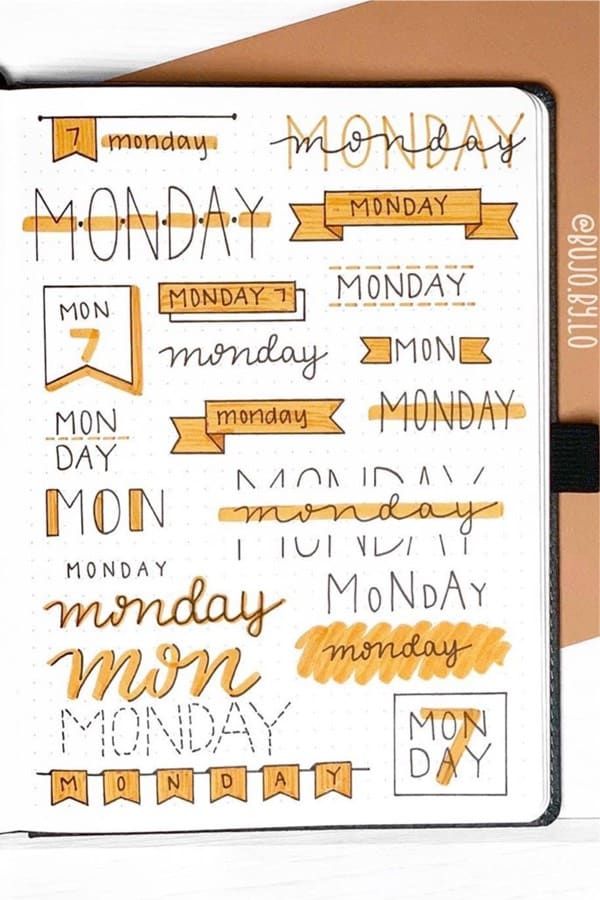 7 monday
MONDAY monday
MONDAY
MONDAY
MONDAY
MON
7
MONDAY 7
monday
MON
MON
DAY
monday
MONDAY
MON
MONDAY
monday
MONDAY
MoNDAy
monday
monday
mon
MONDAY
MON
DAY
7
MONDAY
@BUJO.BY.LO